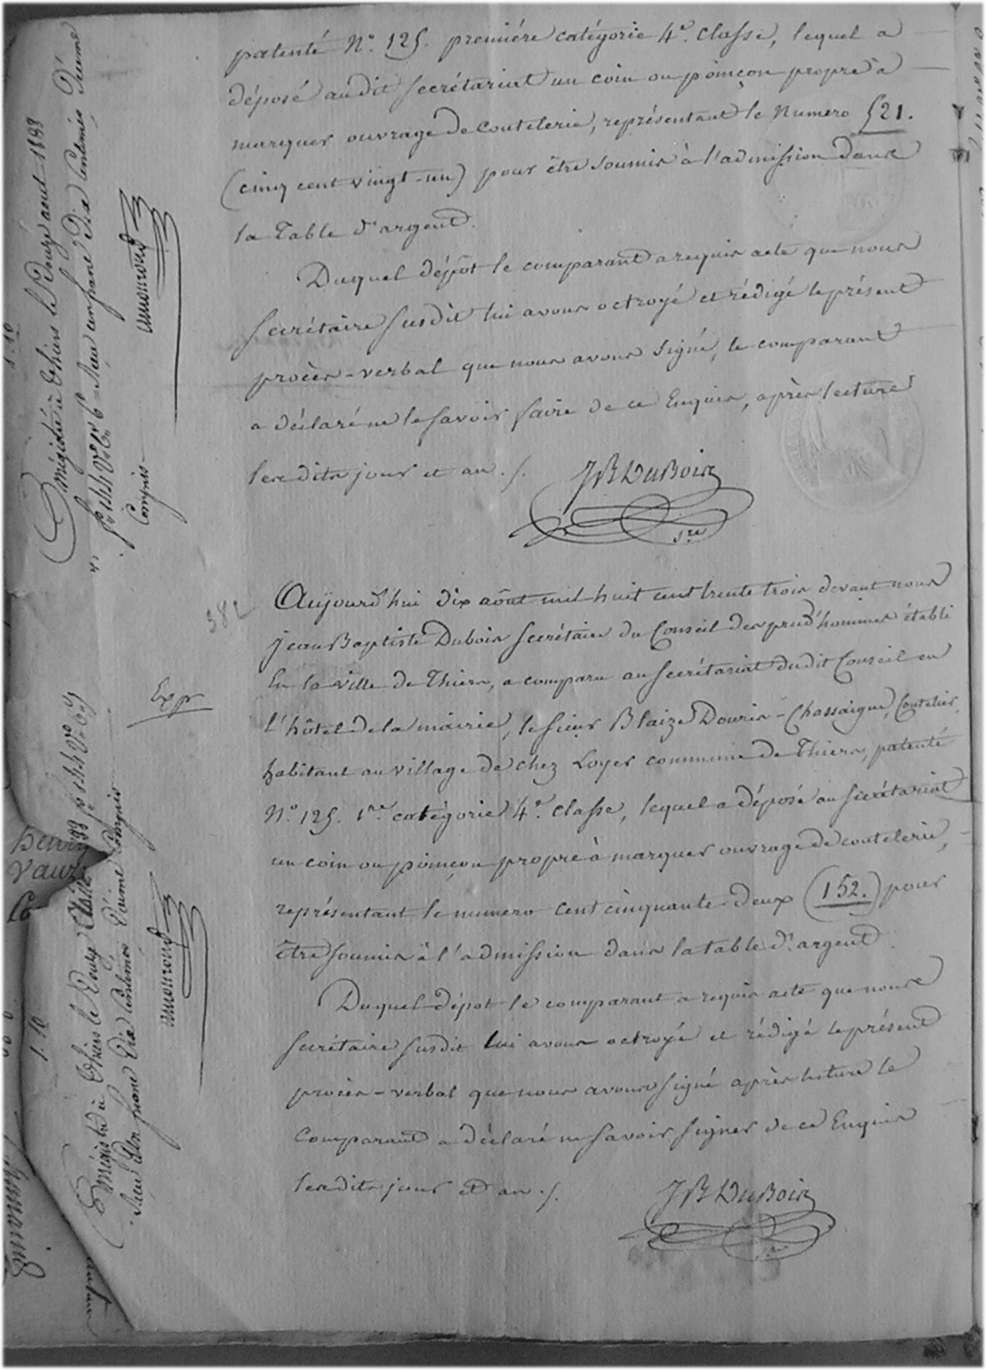 patenté N.º 125. première catégorie 4.e classe, lequel a
déposé audit secrétariat un coin ou poinçon propre à
marquer ouvrage de coutelerie, représentant le Numero 521.
(cinq cent vingt-un) pour être soumis à l'admission dans
la Table d'argent.
Duquel dépôt le comparant a requis acte que nous
secrétaire susdit lui avons octroyé et rédigé le présent
procès-verbal que nous avons signé, le comparant
a déclaré ne le savoir faire de ce Enquis, après lecture
lesdits jour et an ./.
JB DuBois
Sre
382
Aujourd'hui dix août mil huit cent trente trois devant nous
Jean Baptiste Dubois secrétaire du Conseil des prud'hommes établi
En la ville de Thiers, a comparu au secrétariat dudit Conseil en
l'hôtel de la mairie, le sieur Blaize Douris-Chassaigne, Coutelier,
habitant au village de chez Loyer commune de Thiers, patenté
N.º 125. 1re catégorie 4.e classe, lequel a déposé au secrétariat
un coin ou poinçon propre à marquer ouvrage de coutelerie,
représentant le numero cent cinquante deux (152.) pour
être soumis à l'admission dans la table d'argent.
Duquel dépot le comparant a requis acte que nous
secrétaire susdit lui avons octroyé et rédigé le présent
procès-verbal que nous avons signé après lecture le
Comparant a déclaré ne savoir signer de ce Enquis
lesdits jour et an ./.
JB DuBois
Enrégistré à Thiers le Douze aout 1833
reçu un franc Dix centimes Décime
Compris
Exp
Enrégistré à Thiers le Douze
reçu un franc Dix Centimes Décime Compris
1. 10